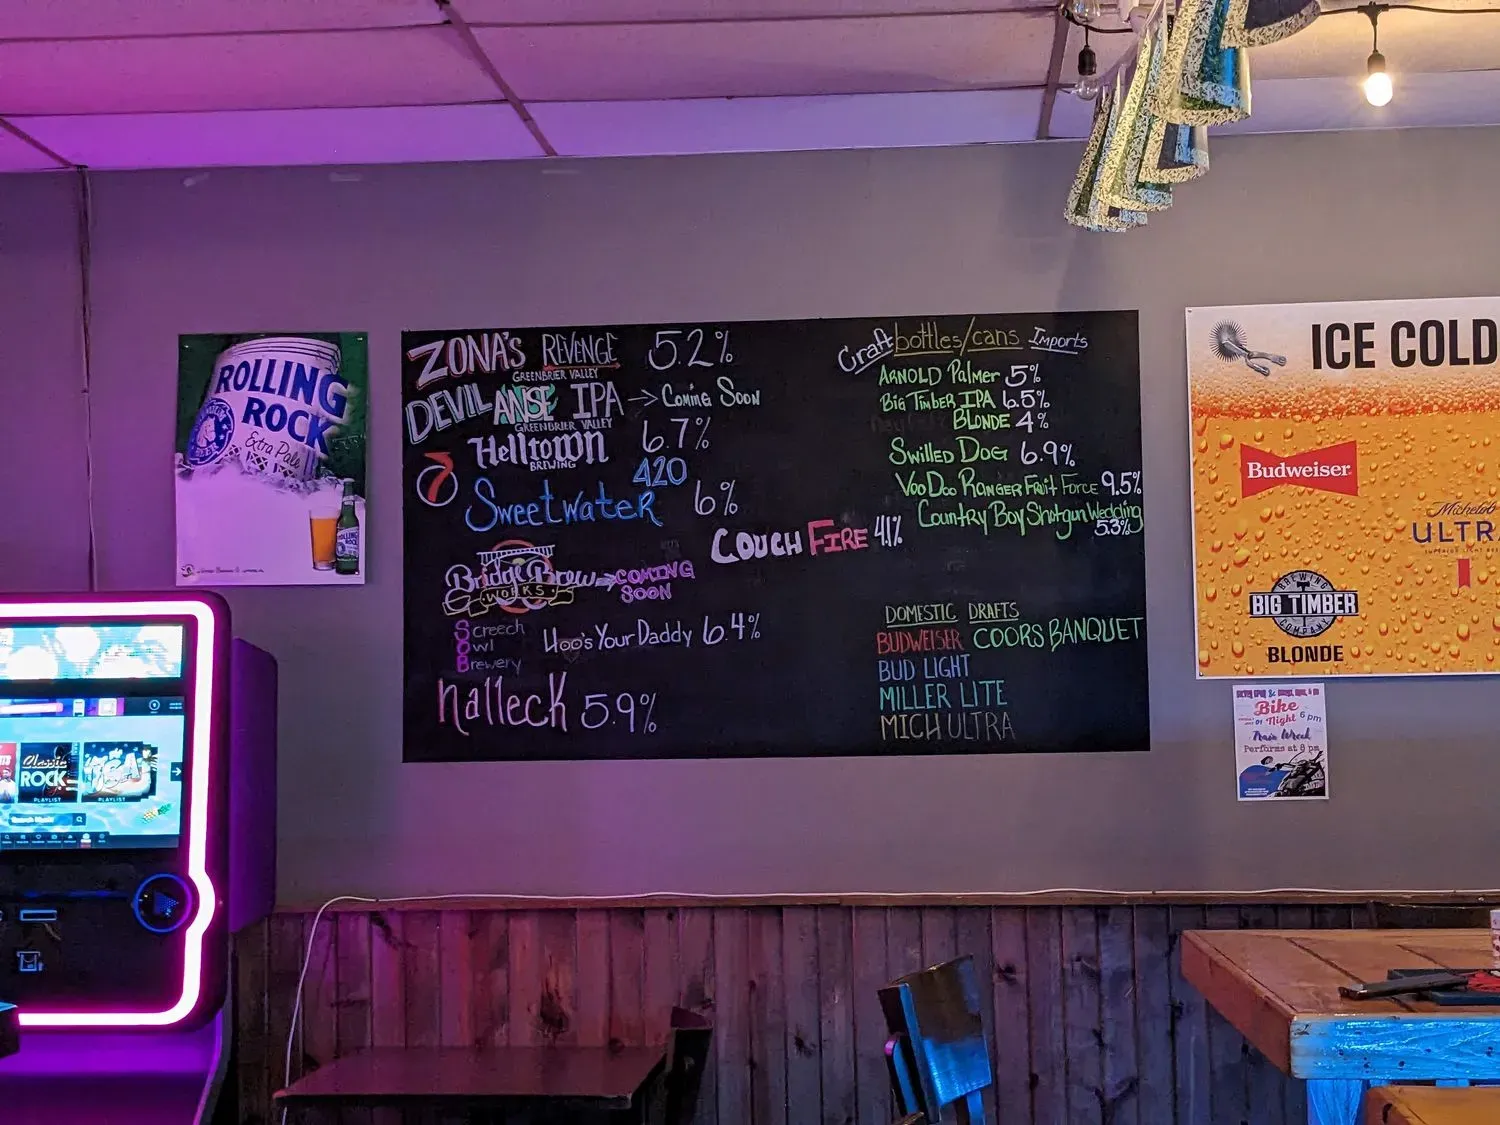 ROLLING
ROCK
Extra Pale
ZONA'S REVENGE 5.2%
GREENBRIER VALLEY
DEVIL ANSE IPA → Coming Soon
GREENBRIER VALLEY
Helltown 6.7%
BREWING
420
SweetWater 6%
COUCH FIRE 4.1%
Bridge Brew → COMING
WORKS SOON
Screech
Owl Hoo's Your Daddy 6.4%
Brewery
nalleck 5.9%
Craft bottles/cans Imports
ARNOLD Palmer 5%
Big Timber IPA 6.5%
BLONDE 4%
Swilled Dog 6.9%
VooDoo Ranger Fruit Force 9.5%
Country Boy Shotgun Wedding
5.3%
DOMESTIC DRAFTS
BUDWEISER COORS BANQUET
BUD LIGHT
MILLER LITE
MICH ULTRA
ICE COLD
Budweiser
Michelob
ULTRA
BREWING
BIG TIMBER
COMPANY
BLONDE
Bike
Night 6 pm
Train Wreck
Performs at 9 pm
Classic
ROCK
PLAYLIST
PLAYLIST
Search Music